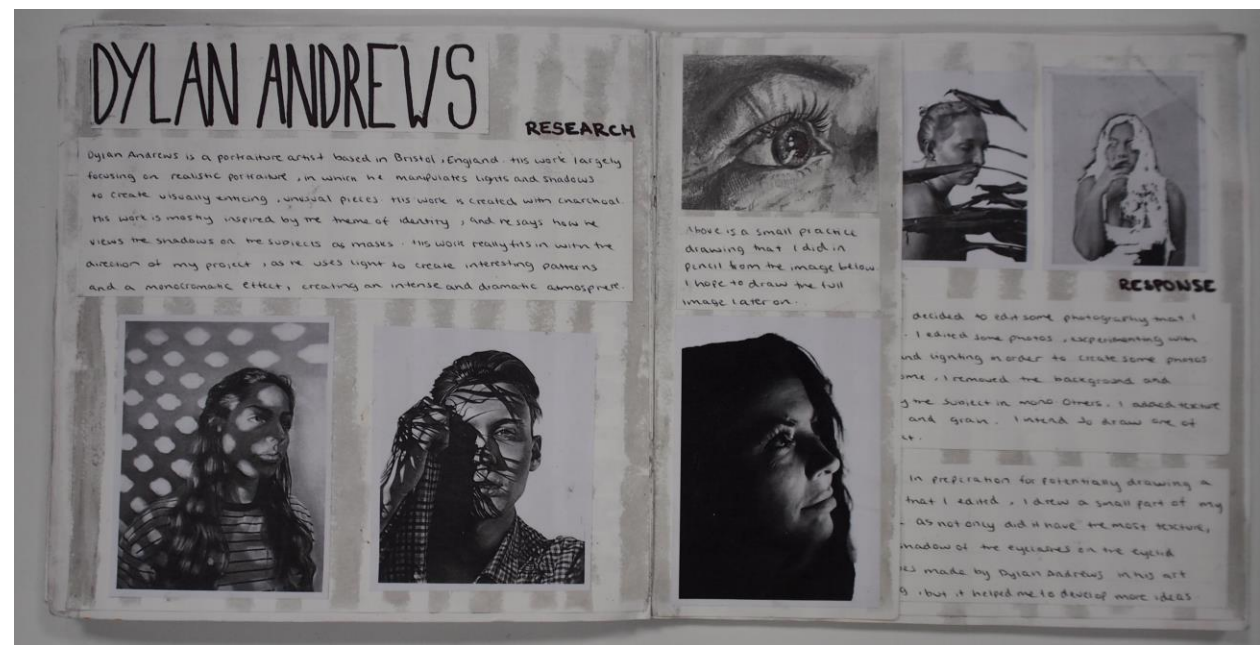 DYLAN ANDREWS
RESEARCH
Dylan Andrews is a portraiture artist based in Bristol, England. His work largely
focusing on realistic portraiture, in which he manipulates lights and shadows
to create visually enticing, unusual pieces. His work is created with charchoal.
His work is mostly inspired by the theme of identity, and he says how he
views the shadows on the subjects as masks. His work really fits in with the
direction of my project, as he uses light to create interesting patterns
and a monocromatic effect, creating an intense and dramatic atmosphere.
Above is a small practice
drawing that I did in
pencil from the image below
I hope to draw the full
image later on.
RESPONSE
decided to edit some photography that I
. I edited some photos, experimenting with
and lighting in order to create some photos
, I removed the background and
the subject in mono. Others, I added texture
and grain. I intend to draw one of
In preparation for potentially drawing a
that I edited, I drew a small part of my
as not only did it have the most texture,
shadow of the eyelashes on the eyelid
made by Dylan Andrews in his art
, but it helped me to develop more ideas.